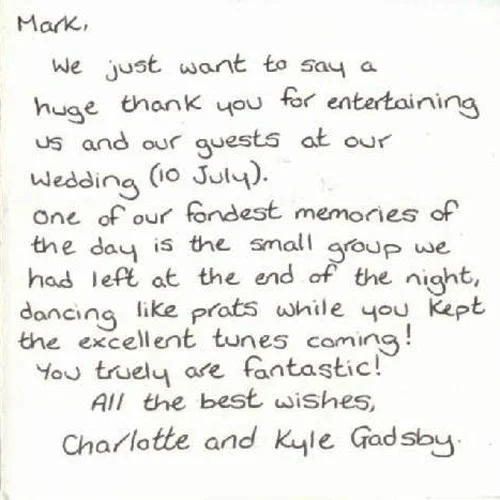 Mark,
We just want to say a
huge thank you for entertaining
us and our guests at our
Wedding (10 July).
One of our fondest memories of
the day is the small group we
had left at the end of the night,
dancing like prats while you kept
the excellent tunes coming!
You truely are fantastic!
All the best wishes,
Charlotte and Kyle Gadsby.